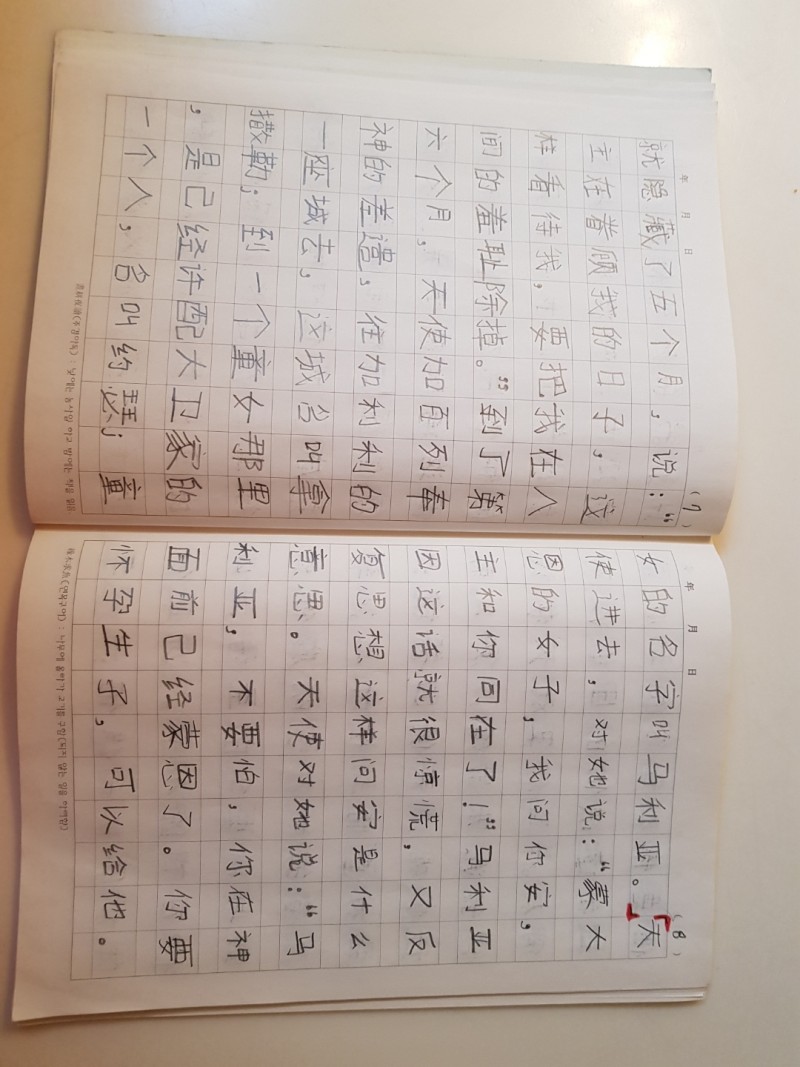 年 月 日
(7)
就隐藏了五个月，说：“
主在眷顾我的日子，这
样看待我，要把我在人
间的羞耻除掉。”到了第
六个月，天使加百列奉
神的差遣，往加利利的
一座城去，这城名叫拿
撒勒；到一个童女那里
，是已经许配大卫家的
一个人，名叫约瑟；童
年 月 日
(8)
女的名字叫马利亚。天
使进去，对她说：“蒙大
恩的女子，我问你安，
主和你同在了！”马利亚
因这话就很惊慌，又反
复思想这样问安是什么
意思。天使对她说：“马
利亚，不要怕，你在神
面前已经蒙恩了。你要
怀孕生子，可以给他。